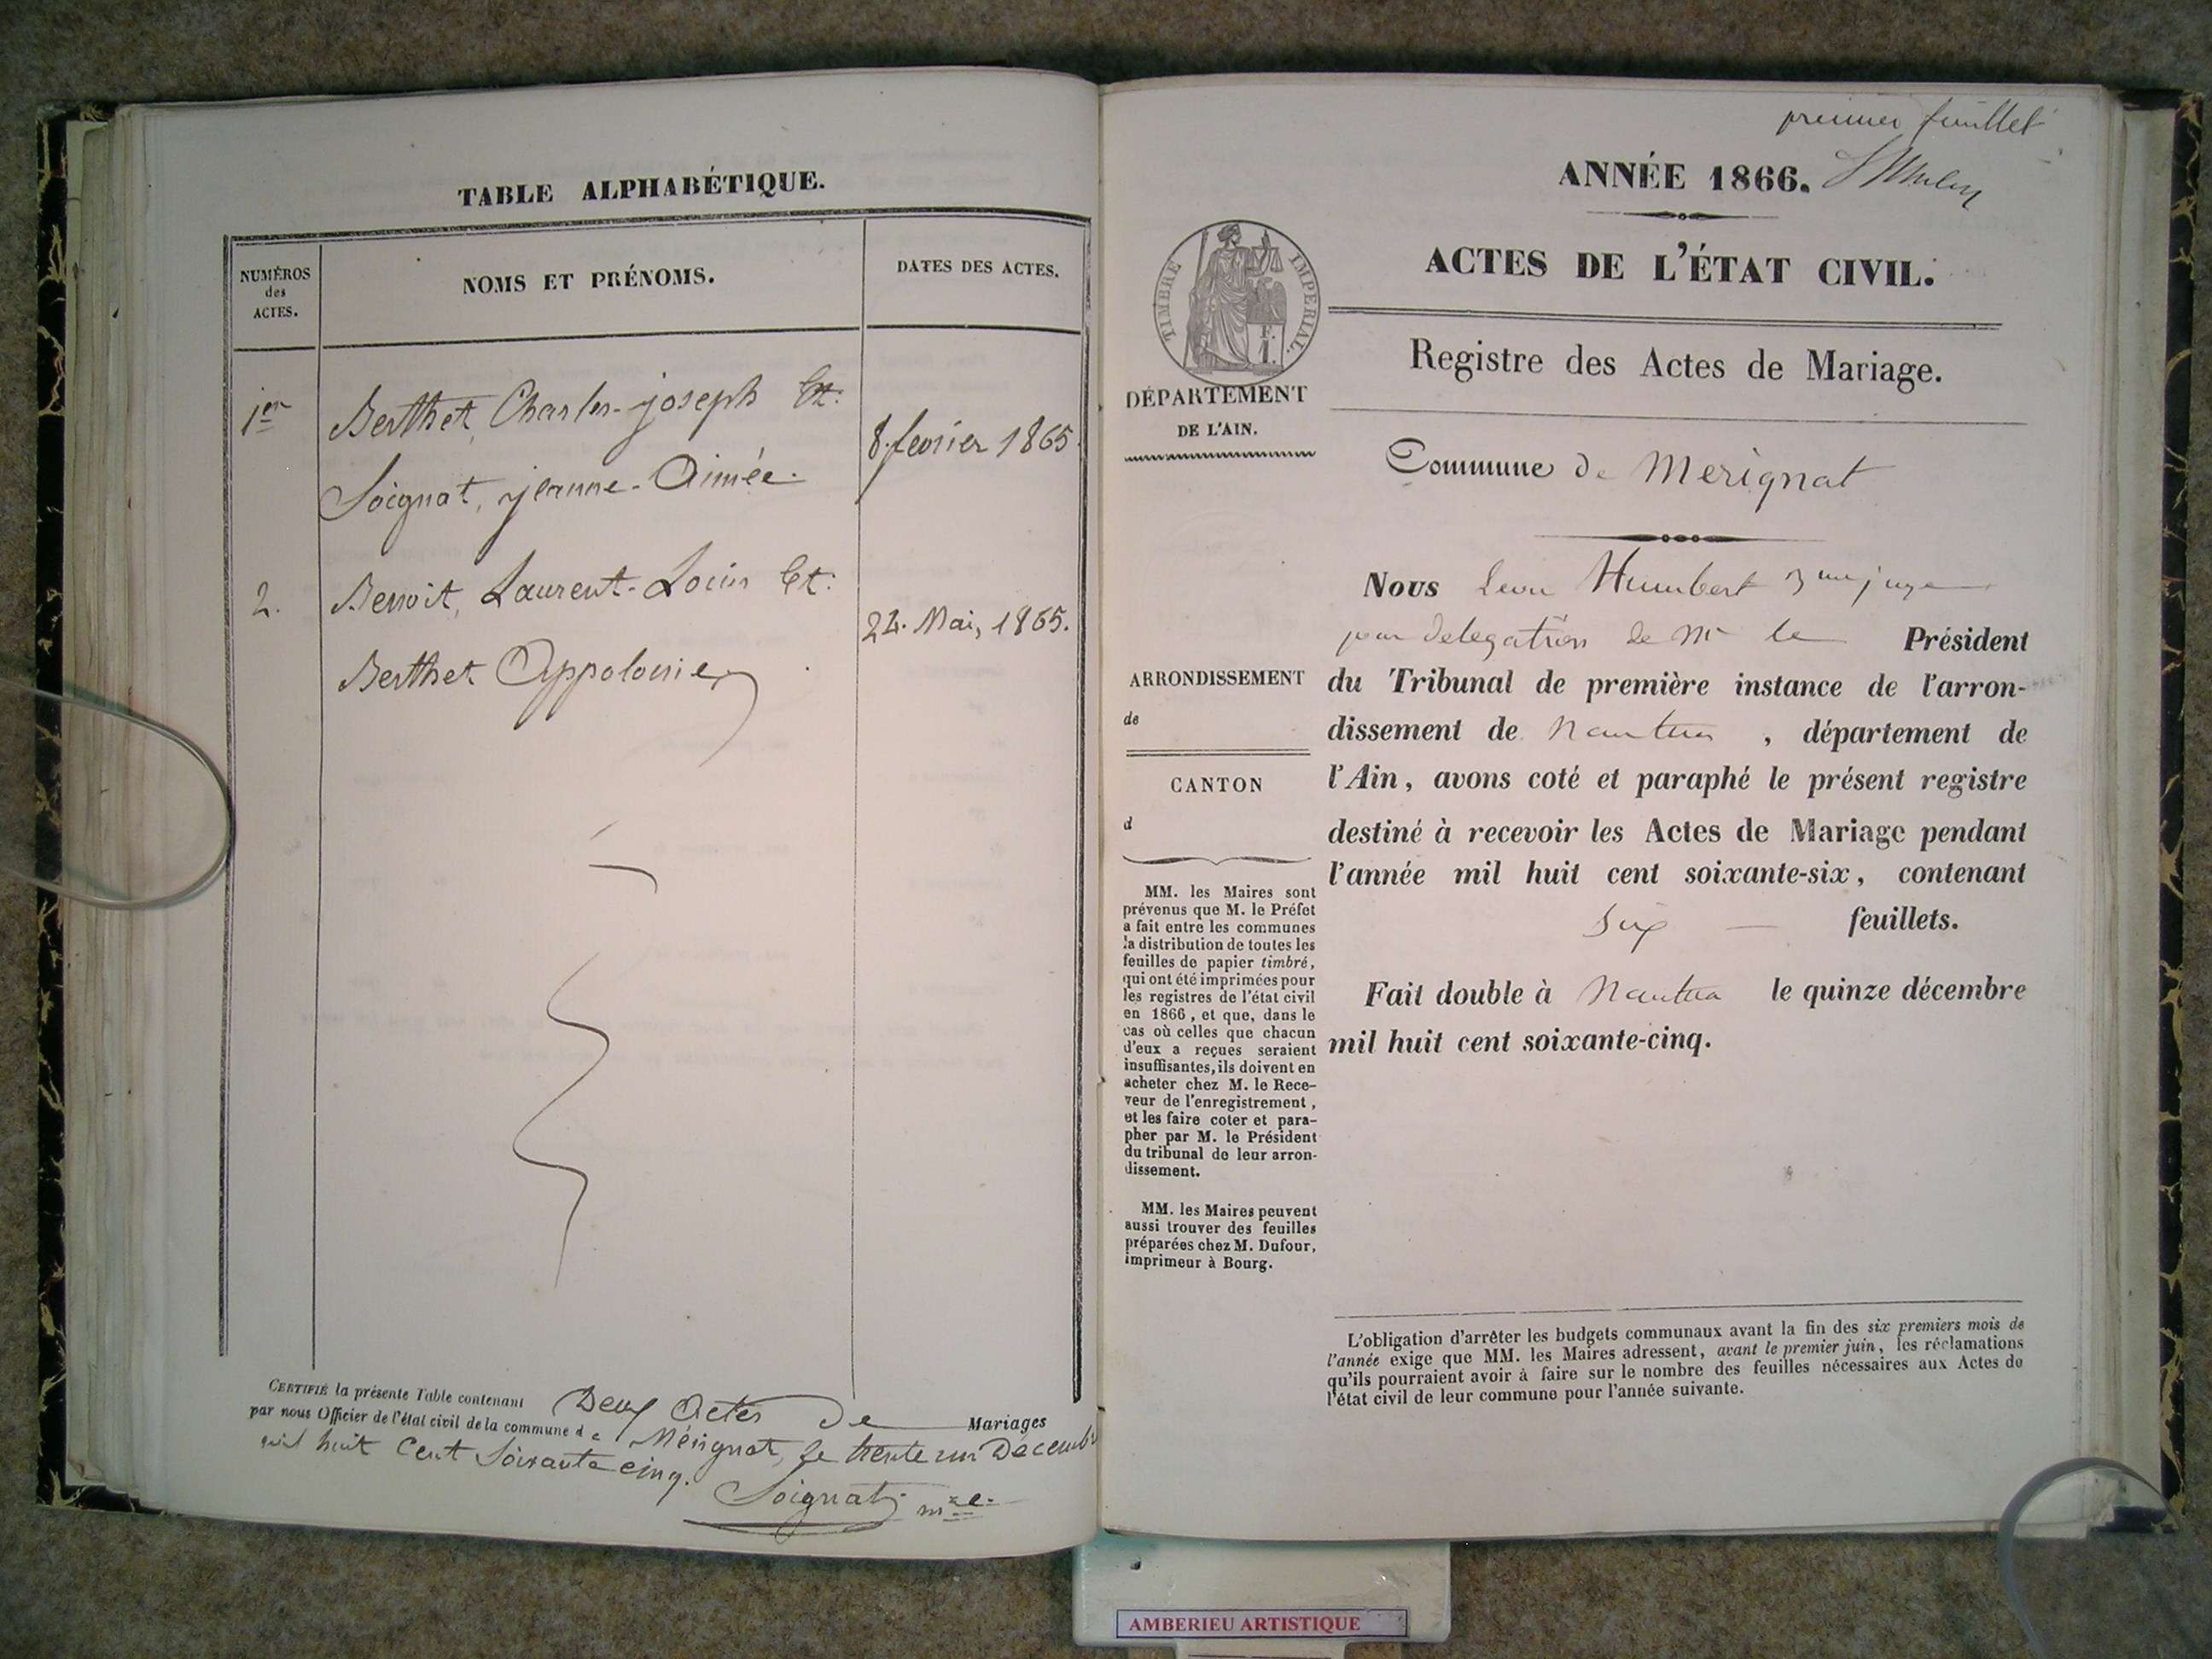 TABLE ALPHABÉTIQUE.
NUMÉROS
des
ACTES.
NOMS ET PRÉNOMS.
DATES DES ACTES.
1er
Berthet, Charles-joseph Et:
Soignat, jeanne-Aimée.
8. fevrier 1865
2.
Benoit, Laurent-Louis Et:
Berthet Appolonie,
22. Mai, 1865.
CERTIFIÉ la présente Table contenant Deux Actes De Mariages
par nous Officier de l'état civil de la commune de Mérignat, le trente un Décemb
mil huit Cent Soixante cinq.
Soignat mre
premier feuillet
ANNÉE 1866.
ACTES DE L'ÉTAT CIVIL.
TIMBRE IMPERIAL.
F.
1.
DÉPARTEMENT
DE L'AIN.
Registre des Actes de Mariage.
Commune de Merignat
Nous Leon Humbert 3me juge
par delegation de Mr le Président
du Tribunal de première instance de l'arron-
dissement de Nantua, département de
l'Ain, avons coté et paraphé le présent registre
destiné à recevoir les Actes de Mariage pendant
l'année mil huit cent soixante-six, contenant
Six feuillets.
Fait double à Nantua le quinze décembre
mil huit cent soixante-cinq.
ARRONDISSEMENT
de
CANTON
d
MM. les Maires sont
prévenus que M. le Préfet
a fait entre les communes
la distribution de toutes les
feuilles de papier timbré,
qui ont été imprimées pour
les registres de l'état civil
en 1866, et que, dans le
cas où celles que chacun
d'eux a reçues seraient
insuffisantes, ils doivent en
acheter chez M. le Rece-
veur de l'enregistrement,
et les faire coter et para-
pher par M. le Président
du tribunal de leur arron-
dissement.
MM. les Maires peuvent
aussi trouver des feuilles
préparées chez M. Dufour,
imprimeur à Bourg.
L'obligation d'arrêter les budgets communaux avant la fin des six premiers mois de
l'année exige que MM. les Maires adressent, avant le premier juin, les réclamations
qu'ils pourraient avoir à faire sur le nombre des feuilles nécessaires aux Actes de
l'état civil de leur commune pour l'année suivante.
AMBERIEU ARTISTIQUE